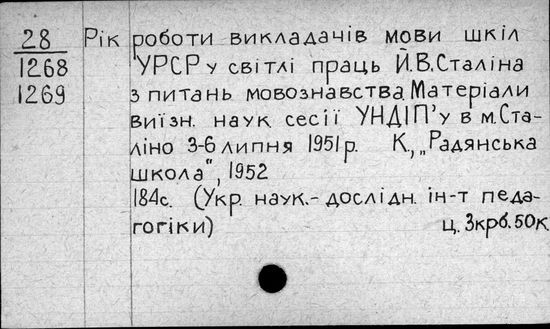 28
1268
1269
Рік роботи викладачів мови шкіл
УРСР у світлі праць Й.В.Сталіна
з питань мовознавства. Матеріали
виїзн. наук сесії УНДІП'у в м.Ста-
ліно 3-6 липня 1951 р. К, „Радянська
школа", 1952
184с. (Укр. наук.-дослідн. ін-т педа-
гогіки) ц. 3крб.50к